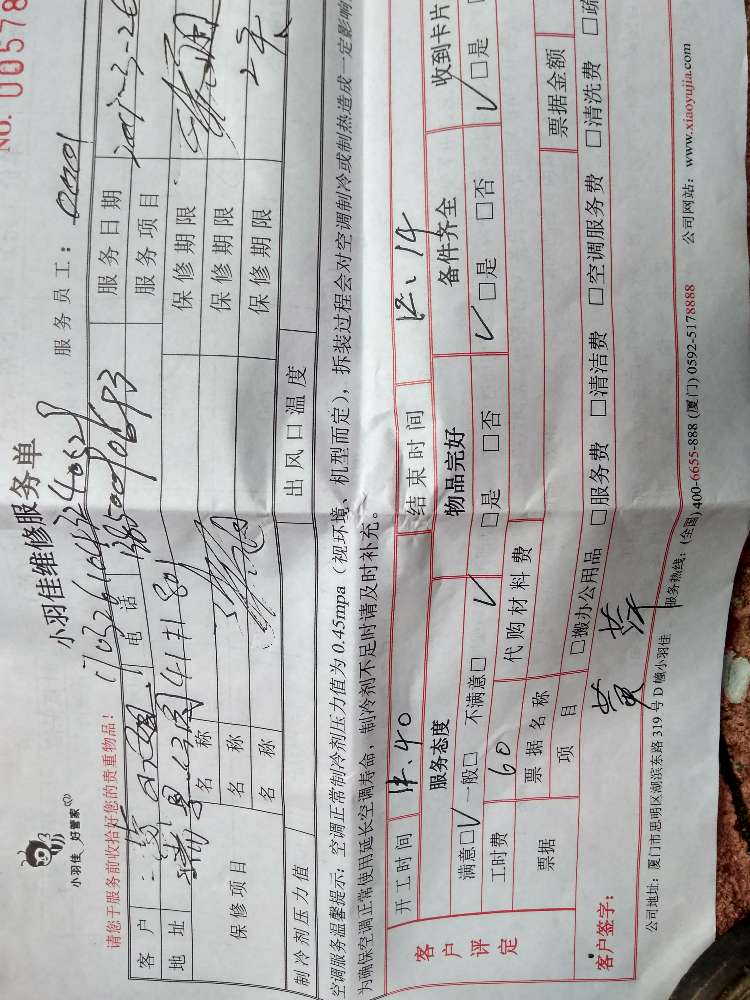 NO. 00578
小羽佳 好管家
小羽佳维修服务单
请您于服务前收拾好您的贵重物品！
服务员工：
客户 电话 服务日期
地址 41#801 服务项目
保修项目 名称 保修期限
名称 保修期限
名称 保修期限
制冷剂压力值 出风口温度
空调服务温馨提示：空调正常制冷剂压力值为0.45mpa（视环境、机型而定），拆装过程会对空调制冷或制热造成一定影响
为确保空调正常使用延长空调寿命，制冷剂不足时请及时补充。
客户评定
开工时间 12.40 结束时间 12.14
服务态度 物品完好 备件齐全 收到卡片
满意□√ 一般□ 不满意□ √□是 □否 √□是 □否 √□是 □否
工时费 60 代购材料费 票据金额
票据 票据名称
项目 □搬办公用品 □服务费 □清洁费 □空调服务费 □清洗费 □疏
客户签字： 黄萍
公司地址：厦门市思明区湖滨东路319号D幢小羽佳 服务热线：(全国)400-6655-888 (厦门) 0592-5178888 公司网站：www.xiaoyujia.com